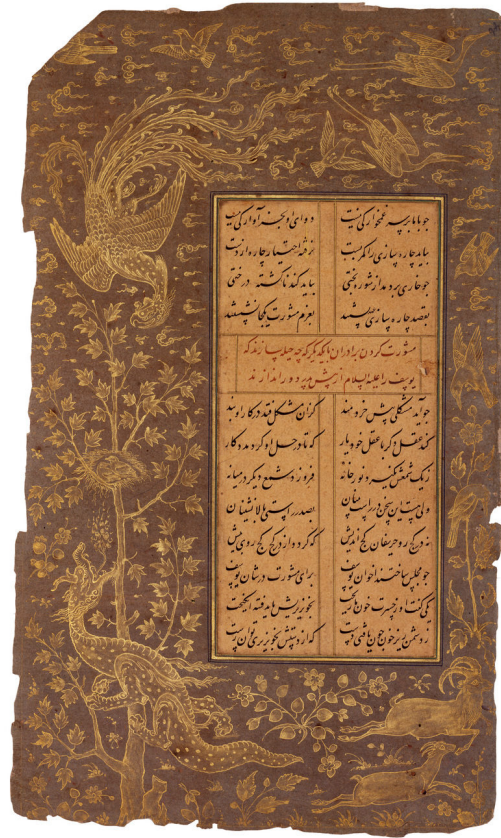 چو با ما بر سر غمخوارگی نیست دوای او بجز آوارگی نیست
بباید چاره سازی را کمر بست نرفته اختیار چاره از دست
چو خاری بر دمد از شوره بختی بباید کند ناگشته درختی
بقصد چاره سازی عهد بستند بعزم مشورت یکجا نشستند
مشورت کردن برادران با یکدیگر که چه حیله سازند که
یوسف را علیه السلام از پیش پدر دور اندازند
چو آید مشکلی پیش خردمند کزان مشکل فتد در کار او بند
کند عقل دگر با عقل خود یار که تا در حل او گردد مددکار
ز یک شمعش نگیرد نور خانه فروزد شمع دیگر در میانه
ولی هست این سخن در راست بینان بصدر راستی بالا نشینان
نه در کج رو حریفان کج اندیش که گردد از دو کج کج روی بیش
چو مجلس ساختند اخوان یوسف برای مشورت در شان یوسف
یکی گفتا ز حسرت خون ما ریخت بخون ریزیش باید فتنه انگیخت
ز دشمن خون چون یافتی دست بخون ریزی توان رست